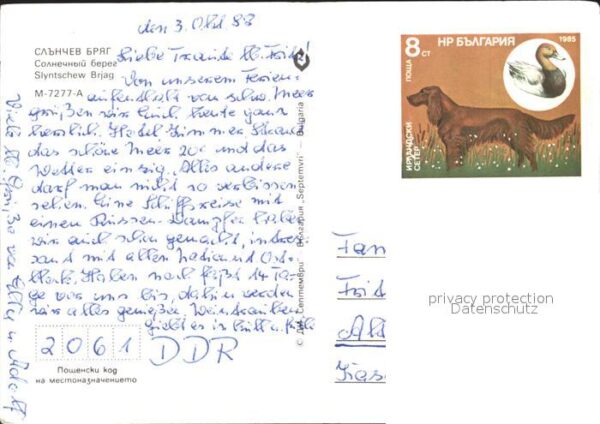 den 3. Okt 88
СЛЪНЧЕВ БРЯГ
Солнечный берег
Slyntschew Brjag
М-7277-А
Liebe Traude u. Fritz!
Von unserem Ferien-
aufenthalt von schw. Meer
grüßen wir Euch heute ganz
herzlich. Hotel Zimmer Strand
das schöne Meer 20° und das
Wetter einzig. Alles andere
darf man nicht so verbissen
sehen. Eine Schiffsreise mit
einen Russen-Dampfer haben
wir auch schon gemacht, interes-
sant mit allen
Haben noch fast 14 Ta-
ge vor uns bis dahin werden
wir alles genießen. Weintrauben
giebt es in Hülle u. Fülle
Viele Grüße von
u Adolf
2061 DDR
Пощенски код
на местоназначението
© ДП „Септември" България „Septemvri" - Bulgaria
8 СТ
ПОЩА
НР БЪЛГАРИЯ
1985
ИРЛАНДСКИ
СЕТЕР
Fam
Frit
Alt
privacy protection
Datenschutz